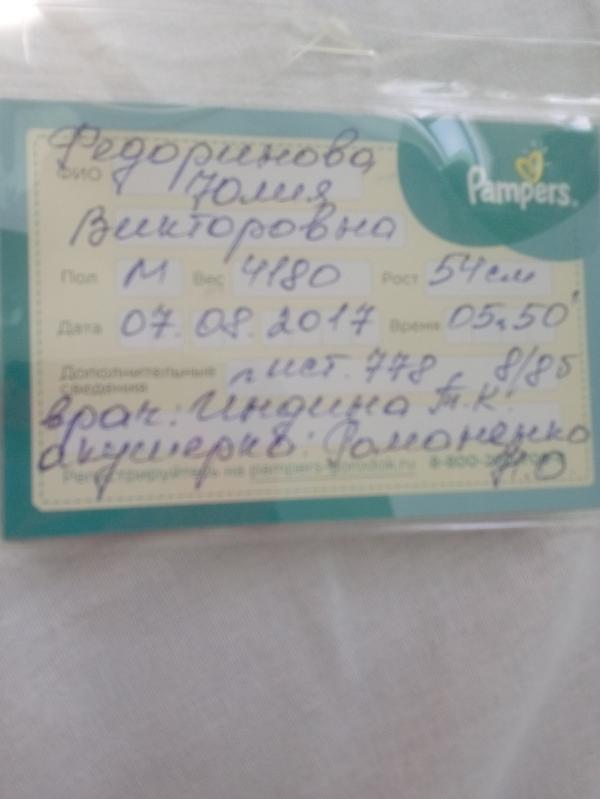 Федоринова
Pampers.
ФИО Юлия
Викторовна
Пол М Вес 4180 Рост 54 см
Дата 07. 08. 2017 Время 05ч 50'
Дополнительные сведения ист. 778 8/8б
врач: Индина Т.К.
акушерка: Романенко
Регистрируйтесь на pampers-gorodok.ru 8-800-
Н.О